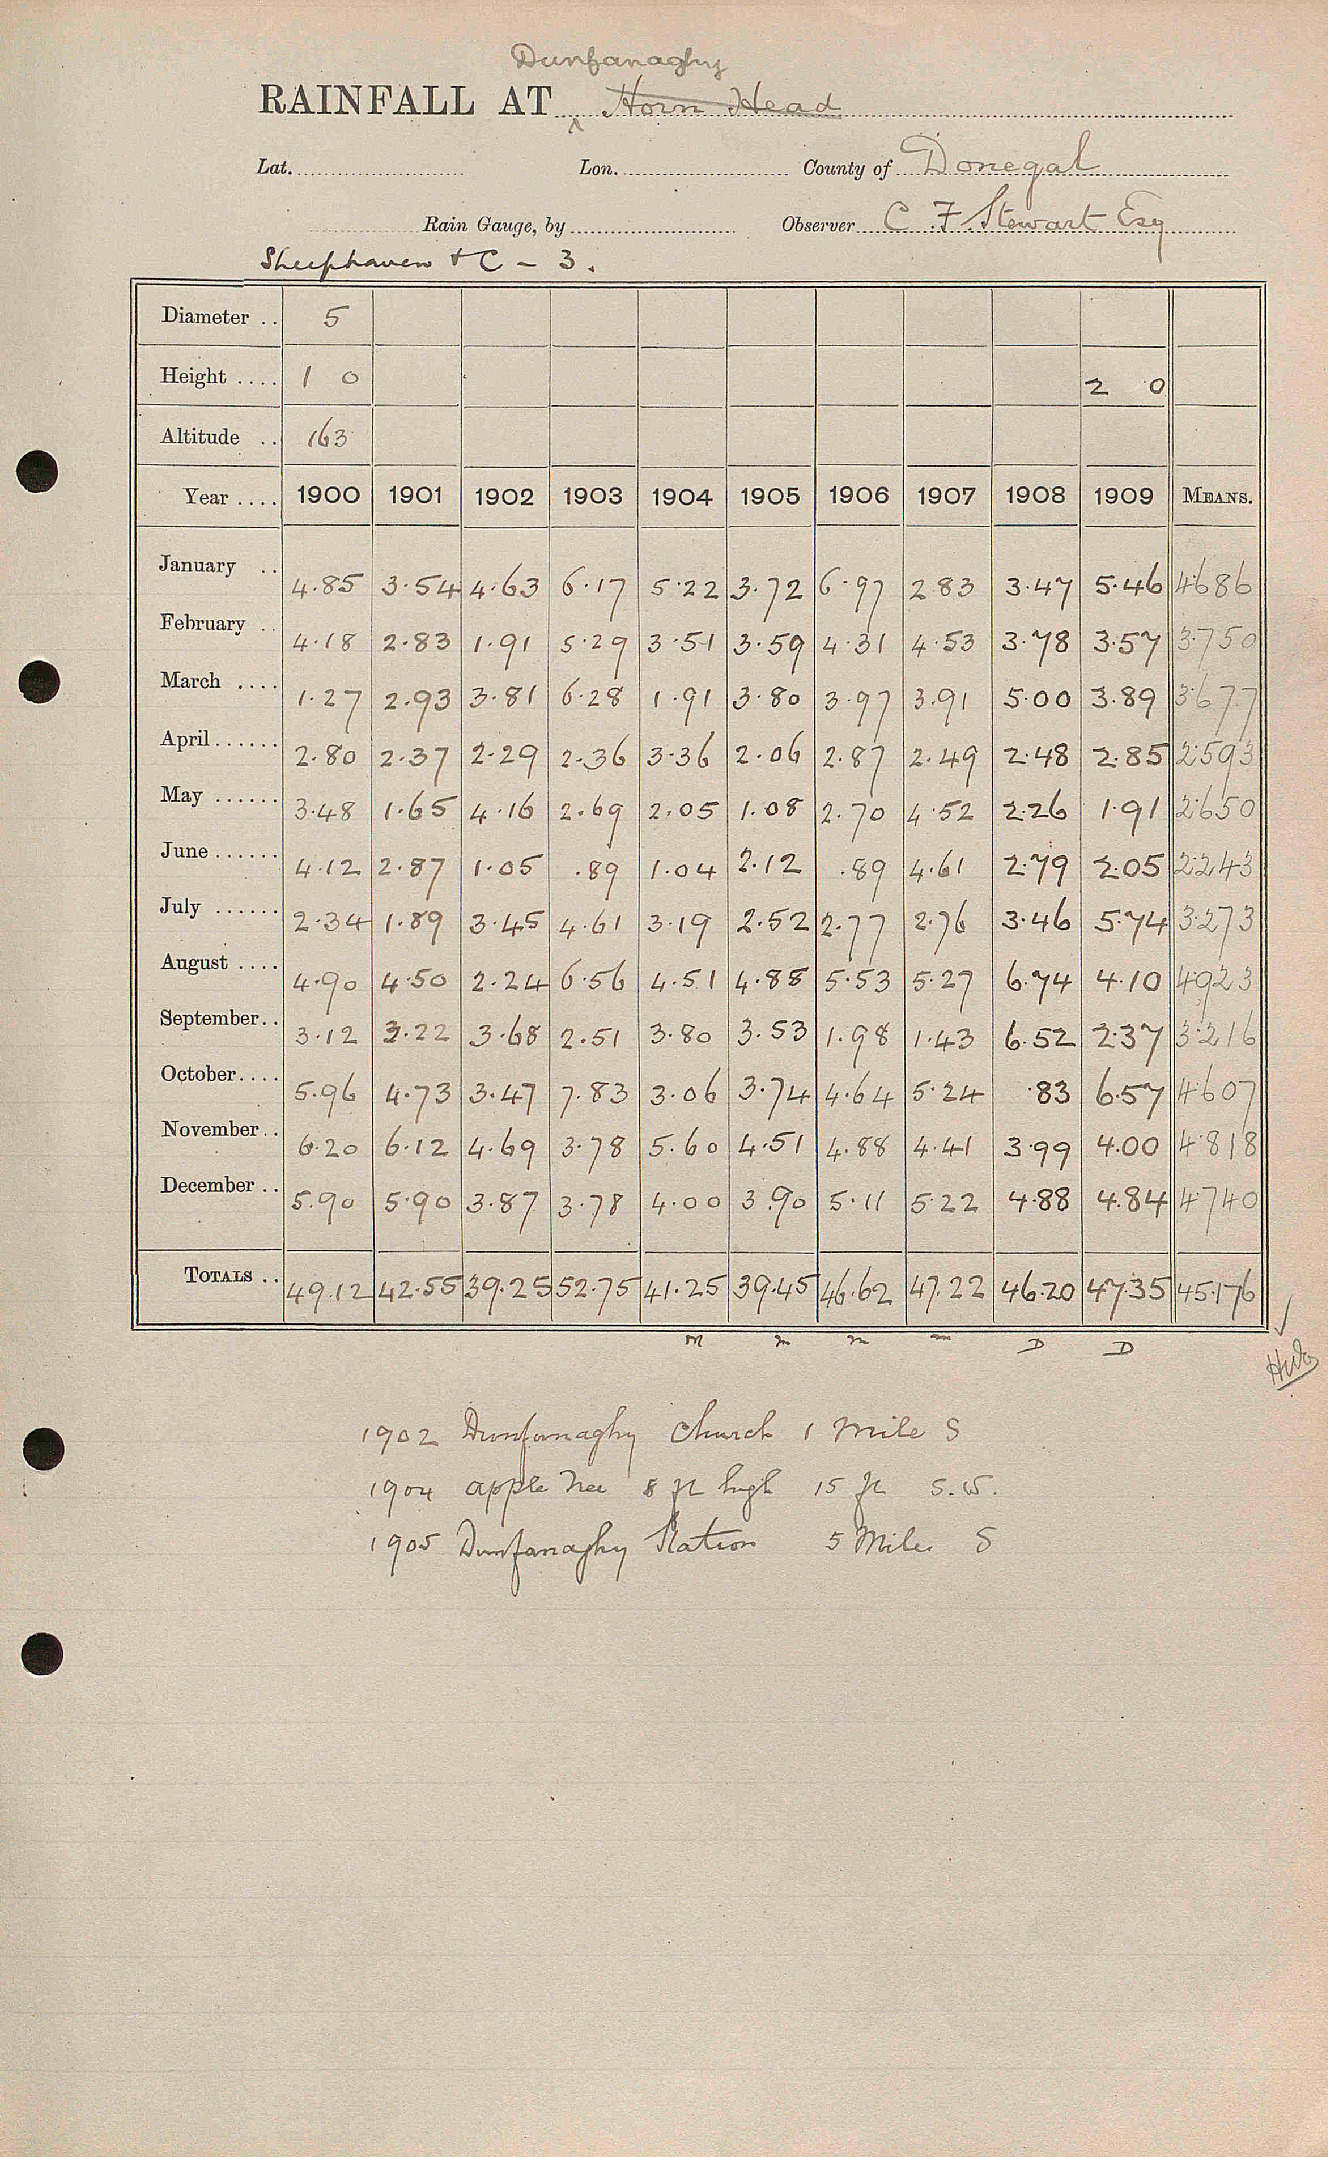 Dunfanaghy
RAINFALL AT Horn Head
Lat. Lon. County of Donegal
Rain Gauge, by Observer C. F. Stewart Esq
Sheephaven + C - 3.
Diameter .. 5
Height .... 1 0 2 0
Altitude .. 163
Year .... 1900 1901 1902 1903 1904 1905 1906 1907 1908 1909 MEANS.
January .. 4.85 3.54 4.63 6.17 5.22 3.72 6.97 2.83 3.47 5.46 4.686
February .. 4.18 2.83 1.91 5.29 3.51 3.59 4.31 4.53 3.78 3.57 3.750
March .... 1.27 2.93 3.81 6.28 1.91 3.80 3.97 3.91 5.00 3.89 3.677
April...... 2.80 2.37 2.29 2.36 3.36 2.06 2.87 2.49 2.48 2.85 2.593
May ...... 3.48 1.65 4.16 2.69 2.05 1.08 2.70 4.52 2.26 1.91 2.650
June...... 4.12 2.87 1.05 .89 1.04 2.12 .89 4.61 2.79 2.05 2.243
July ...... 2.34 1.89 3.45 4.61 3.19 2.52 2.77 2.76 3.46 5.74 3.273
August .... 4.90 4.50 2.24 6.56 4.51 4.88 5.53 5.27 6.74 4.10 4.923
September.. 3.12 3.22 3.68 2.51 3.80 3.53 1.98 1.43 6.52 2.37 3.216
October.... 5.96 4.73 3.47 7.83 3.06 3.74 4.64 5.24 .83 6.57 4.607
November.. 6.20 6.12 4.69 3.78 5.60 4.51 4.88 4.41 3.99 4.00 4.818
December .. 5.90 5.90 3.87 3.78 4.00 3.90 5.11 5.22 4.88 4.84 4.740
TOTALS .. 49.12 42.55 39.25 52.75 41.25 39.45 46.62 47.22 46.20 47.35 45.176
m m m m D D
1902 Dunfanaghy Church 1 Mile S
1904 apple tree 8 ft high 15 ft S.W.
1905 Dunfanaghy Station 5 Miles S